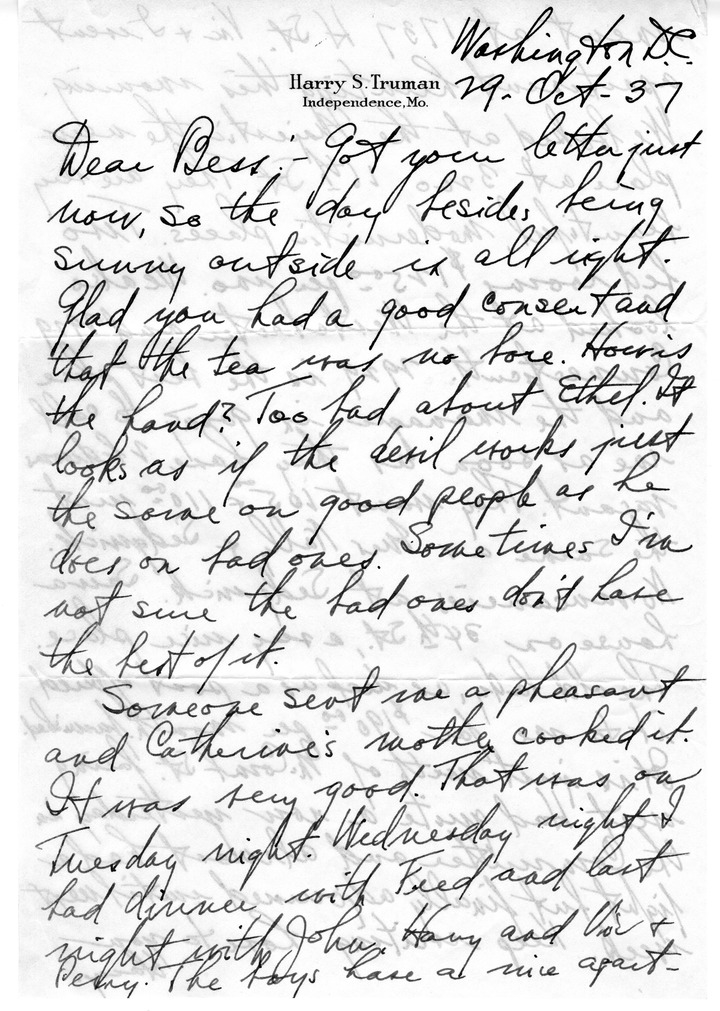 Washington D.C.
Harry S. Truman
Independence, Mo.
29-Oct-37
Dear Bess:- Got your letter just
now, so the day besides being
sunny outside is all right.
Glad you had a good consert and
that the tea was no bore. How is
the hand? Too bad about Ethel. It
looks as if the devil works just
the same on good people as he
does on bad ones. Sometimes I'm
not sure the bad ones don't have
the best of it.
Someone sent me a pheasant
and Catherine's mother cooked it.
It was very good. That was on
Tuesday night. Wednesday night I
had dinner with Fred and last
night with John. Harry and Vic +
The boys have a nice apart-